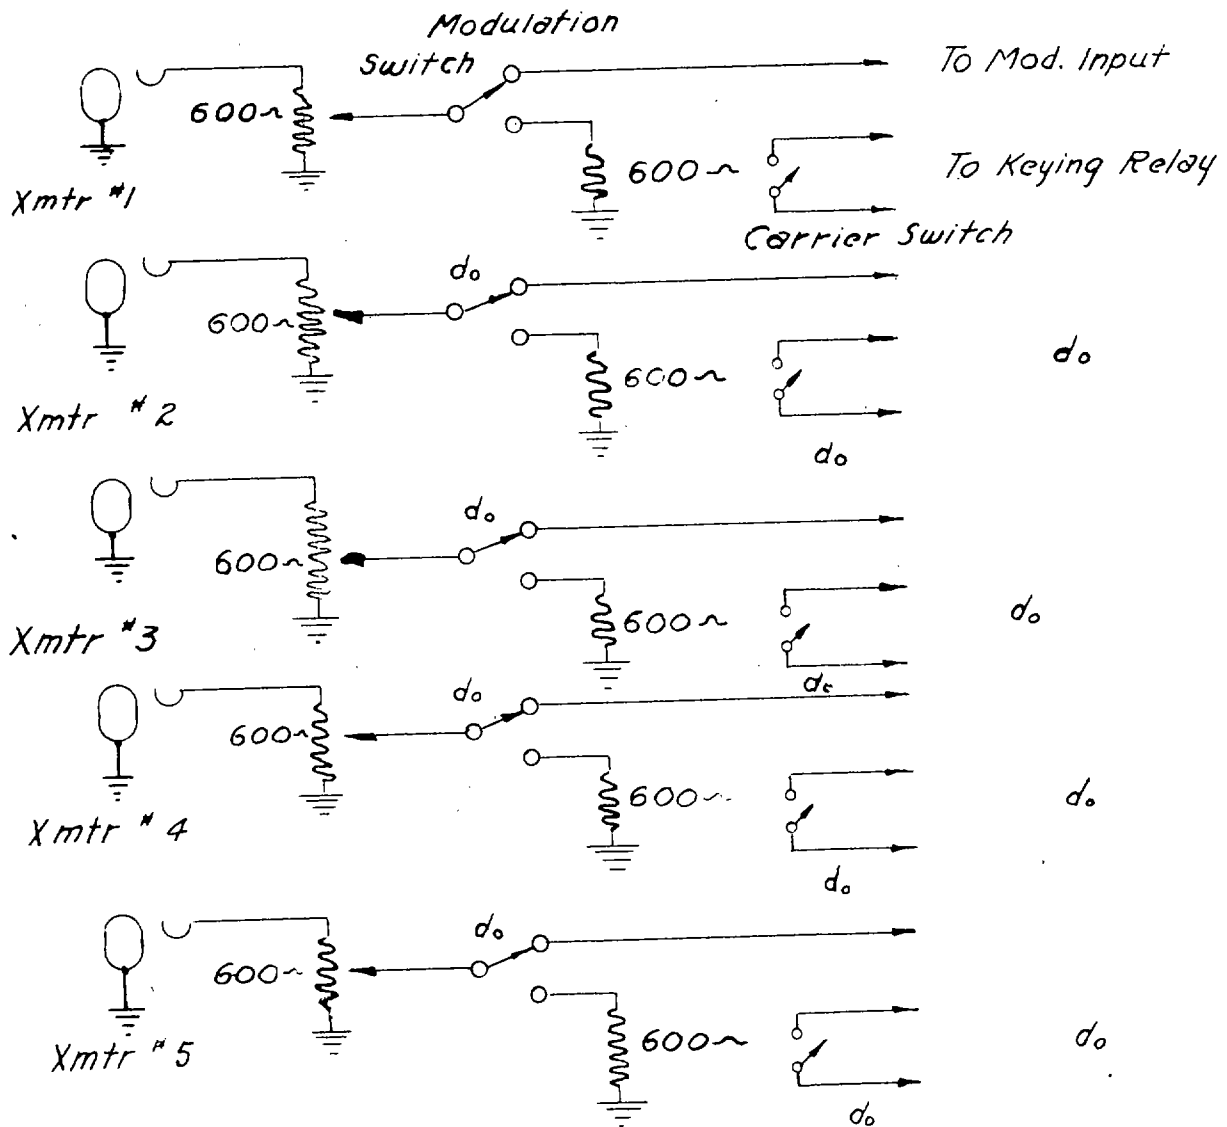 Modulation
Switch
To Mod. Input
600~
600~
To Keying Relay
Xmtr #1
Carrier Switch
do
600~
600~
do
Xmtr #2
do
do
600~
600~
do
Xmtr #3
do
do
600~
600~
do
Xmtr #4
do
do
600~
600~
do
Xmtr #5
do